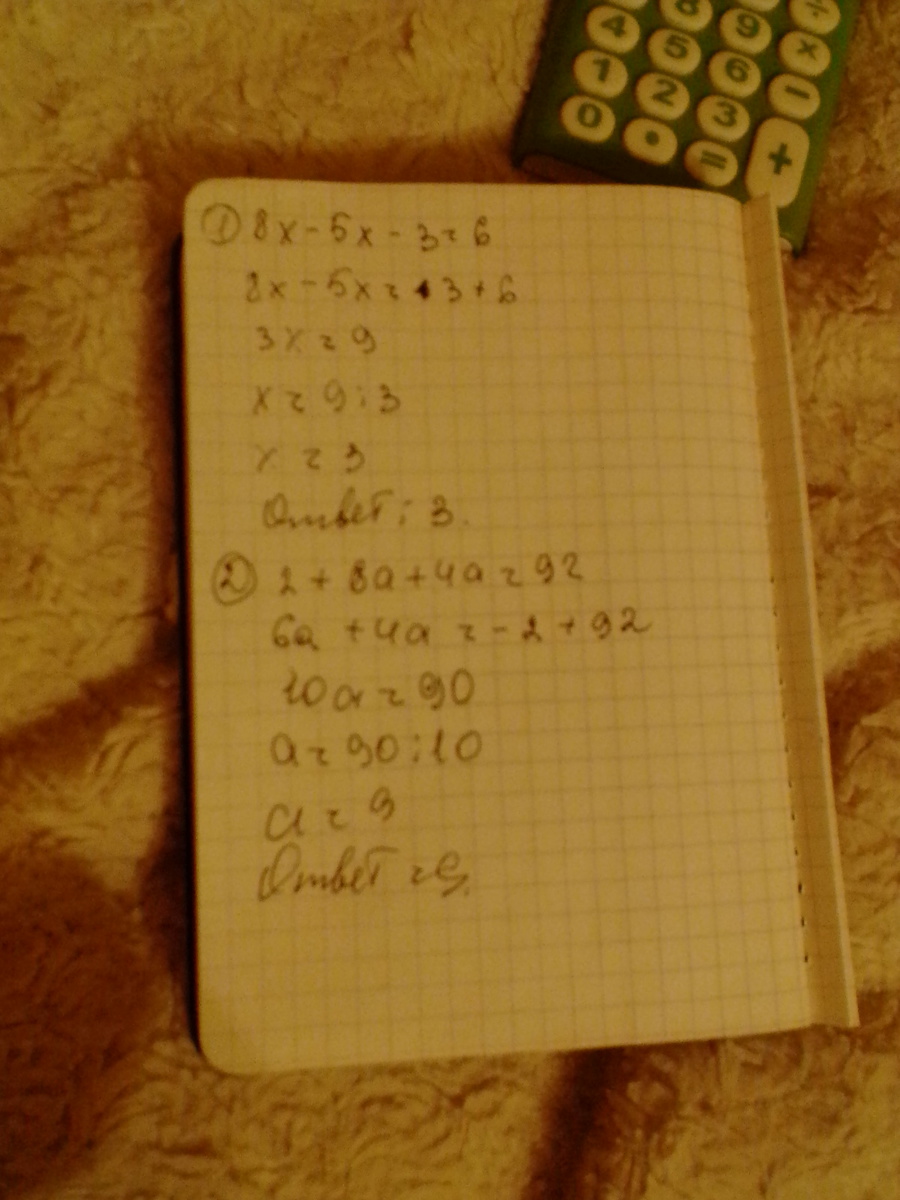 8 9 ÷
4 5 6 ×
1 2 3 −
0 . = +
① 8x - 5x - 3 = 6
8x - 5x = 3 + 6
3x = 9
x = 9 : 3
x = 3
Ответ: 3.
② 2 + 8a + 4a = 92
6a + 4a = - 2 + 92
10a = 90
a = 90 : 10
a = 9
Ответ = 9.